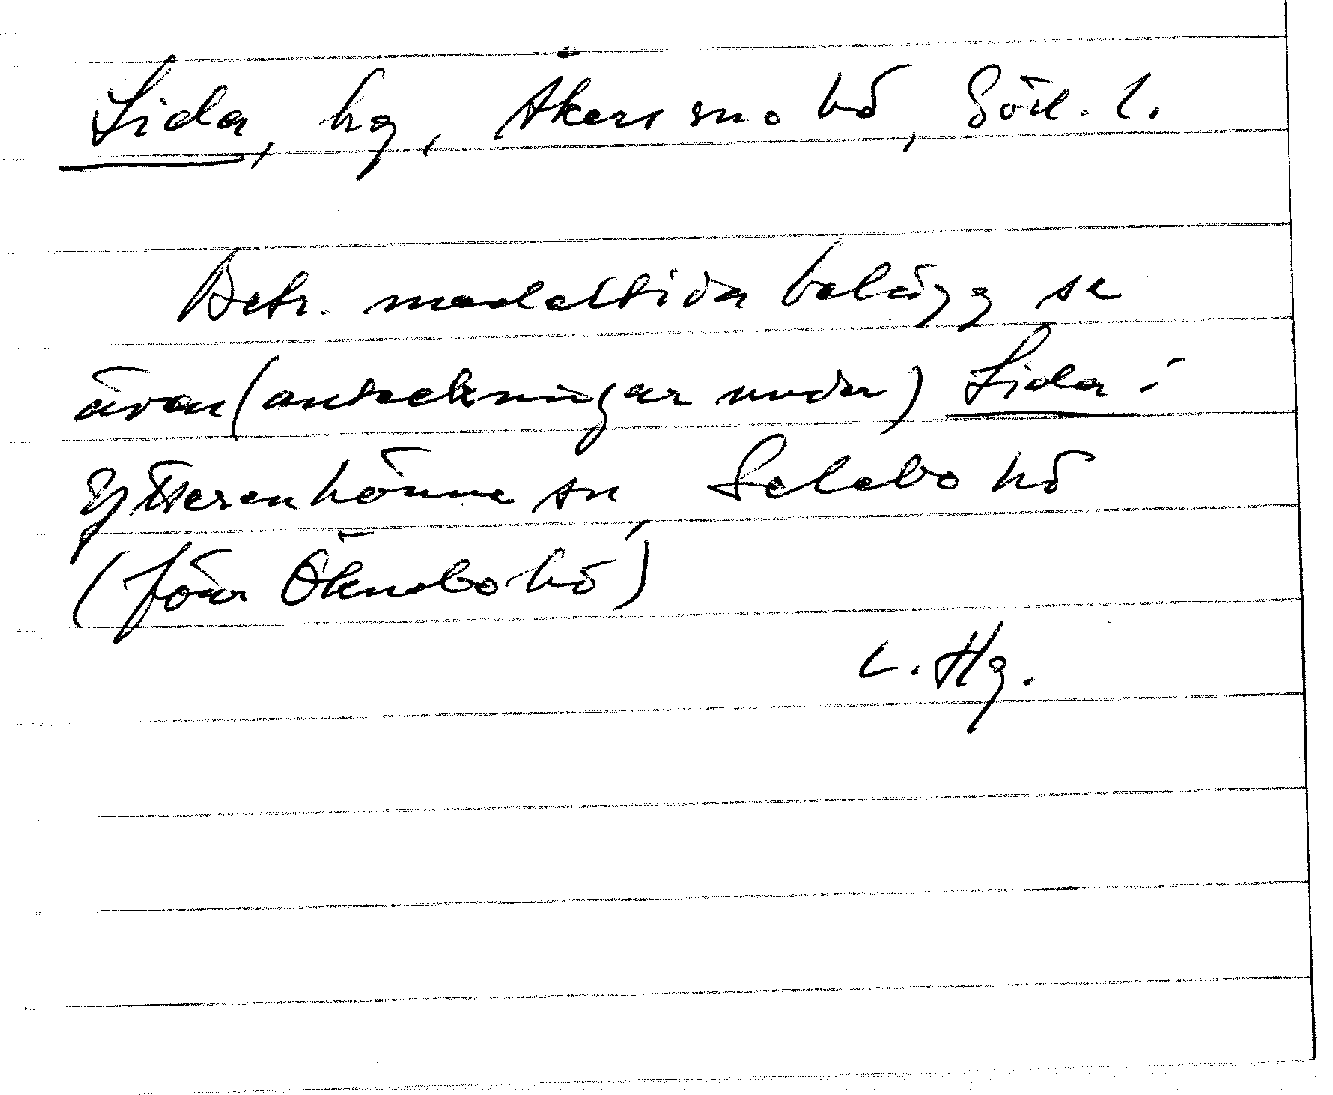 Lida, hg, Åkers sn o hd, Söd. l.
Betr. medeltida belägg se
även (anteckningar under) Lida i
Ytterenhörna sn, Selebo hd
(förr Öknebo hd)
L. Hg.